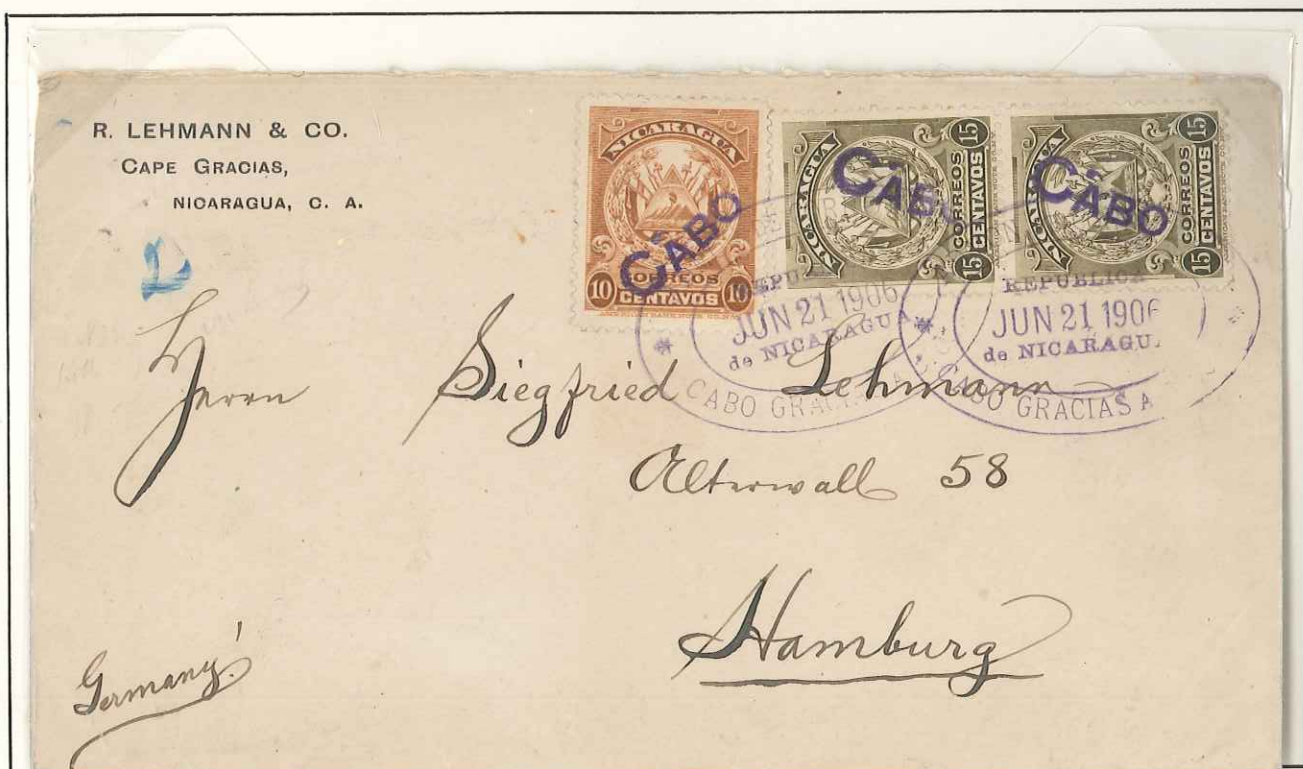 R. LEHMANN & CO.
CAPE GRACIAS,
NICARAGUA, C. A.
NICARAGUA
CORREOS
10 CENTAVOS 10
CABO
NICARAGUA
CORREOS
15 CENTAVOS 15
CABO
NICARAGUA
CORREOS
15 CENTAVOS 15
CABO
REPU
JUN 21 1906
de NICARAGUA
CABO GRACIAS A
REPUBLICA
JUN 21 1906
de NICARAGU
CABO GRACIAS A
Herrn Siegfried Lehmann
Alterwall 58
Hamburg
Germany!